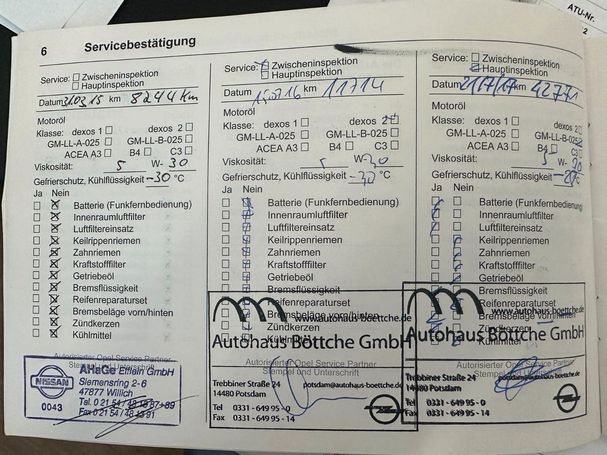 ATU-Nr.
2
6 Servicebestätigung
Service: Zwischeninspektion
Hauptinspektion
Datum 31.03.15 km 8244 Km
Motoröl
Klasse: dexos 1 dexos 2
GM-LL-A-025 GM-LL-B-025
ACEA A3 B4 C3
Viskosität: 5 W- 30
Gefrierschutz, Kühlflüssigkeit -30 °C
Ja Nein
Batterie (Funkfernbedienung)
Innenraumluftfilter
Luftfiltereinsatz
Keilrippenriemen
Zahnriemen
Kraftstofffilter
Getriebeöl
Bremsflüssigkeit
Reifenreparaturset
Bremsbeläge vorn/hinten
Zündkerzen
Kühlmittel
Autorisierter Opel Service Partner
NISSAN
0043
AHaGe Erlen GmbH
Siemensring 2-6
47877 Willich
Service: Zwischeninspektion
Hauptinspektion
Datum km 11714
Motoröl
Klasse: dexos 1 dexos 2
GM-LL-A-025 GM-LL-B-025
ACEA A3 B4 C3
Viskosität: 5 W- 30
Gefrierschutz, Kühlflüssigkeit -30 °C
Ja Nein
Batterie (Funkfernbedienung)
Innenraumluftfilter
Luftfiltereinsatz
Keilrippenriemen
Zahnriemen
Kraftstofffilter
Getriebeöl
Bremsflüssigkeit
Reifenreparaturset
Bremsbeläge vorn/hinten
Zündkerzen
www.autohaus-boettche.de
Autohaus Böttche GmbH
Autorisierter Opel Service Partner
Stempel und Unterschrift
Trebbiner Straße 24 potsdam@autohaus-boettche.de
14480 Potsdam
Tel 0331 - 649 95 - 0
Fax 0331 - 649 95 - 14
Service: Zwischeninspektion
Hauptinspektion
Datum km 42771
Motoröl
Klasse: dexos 1 dexos 2
GM-LL-A-025 GM-LL-B-025
ACEA A3 B4 C3
Viskosität: 5 W- 30
Gefrierschutz, Kühlflüssigkeit °C
Ja Nein
Batterie (Funkfernbedienung)
Innenraumluftfilter
Luftfiltereinsatz
Keilrippenriemen
Zahnriemen
Kraftstofffilter
Getriebeöl
Bremsflüssigkeit
Reifenreparaturset
www.autohaus-boettche.de
Bremsbeläge vorn/hinten
Zündkerzen
Autohaus Böttche GmbH
Kühlmittel
Autorisierter Opel Service Partner
Stempel und Unterschrift
Trebbiner Straße 24 potsdam@autohaus-boettche.de
14480 Potsdam
Tel 0331 - 649 95 - 0
Fax 0331 - 649 95 - 14